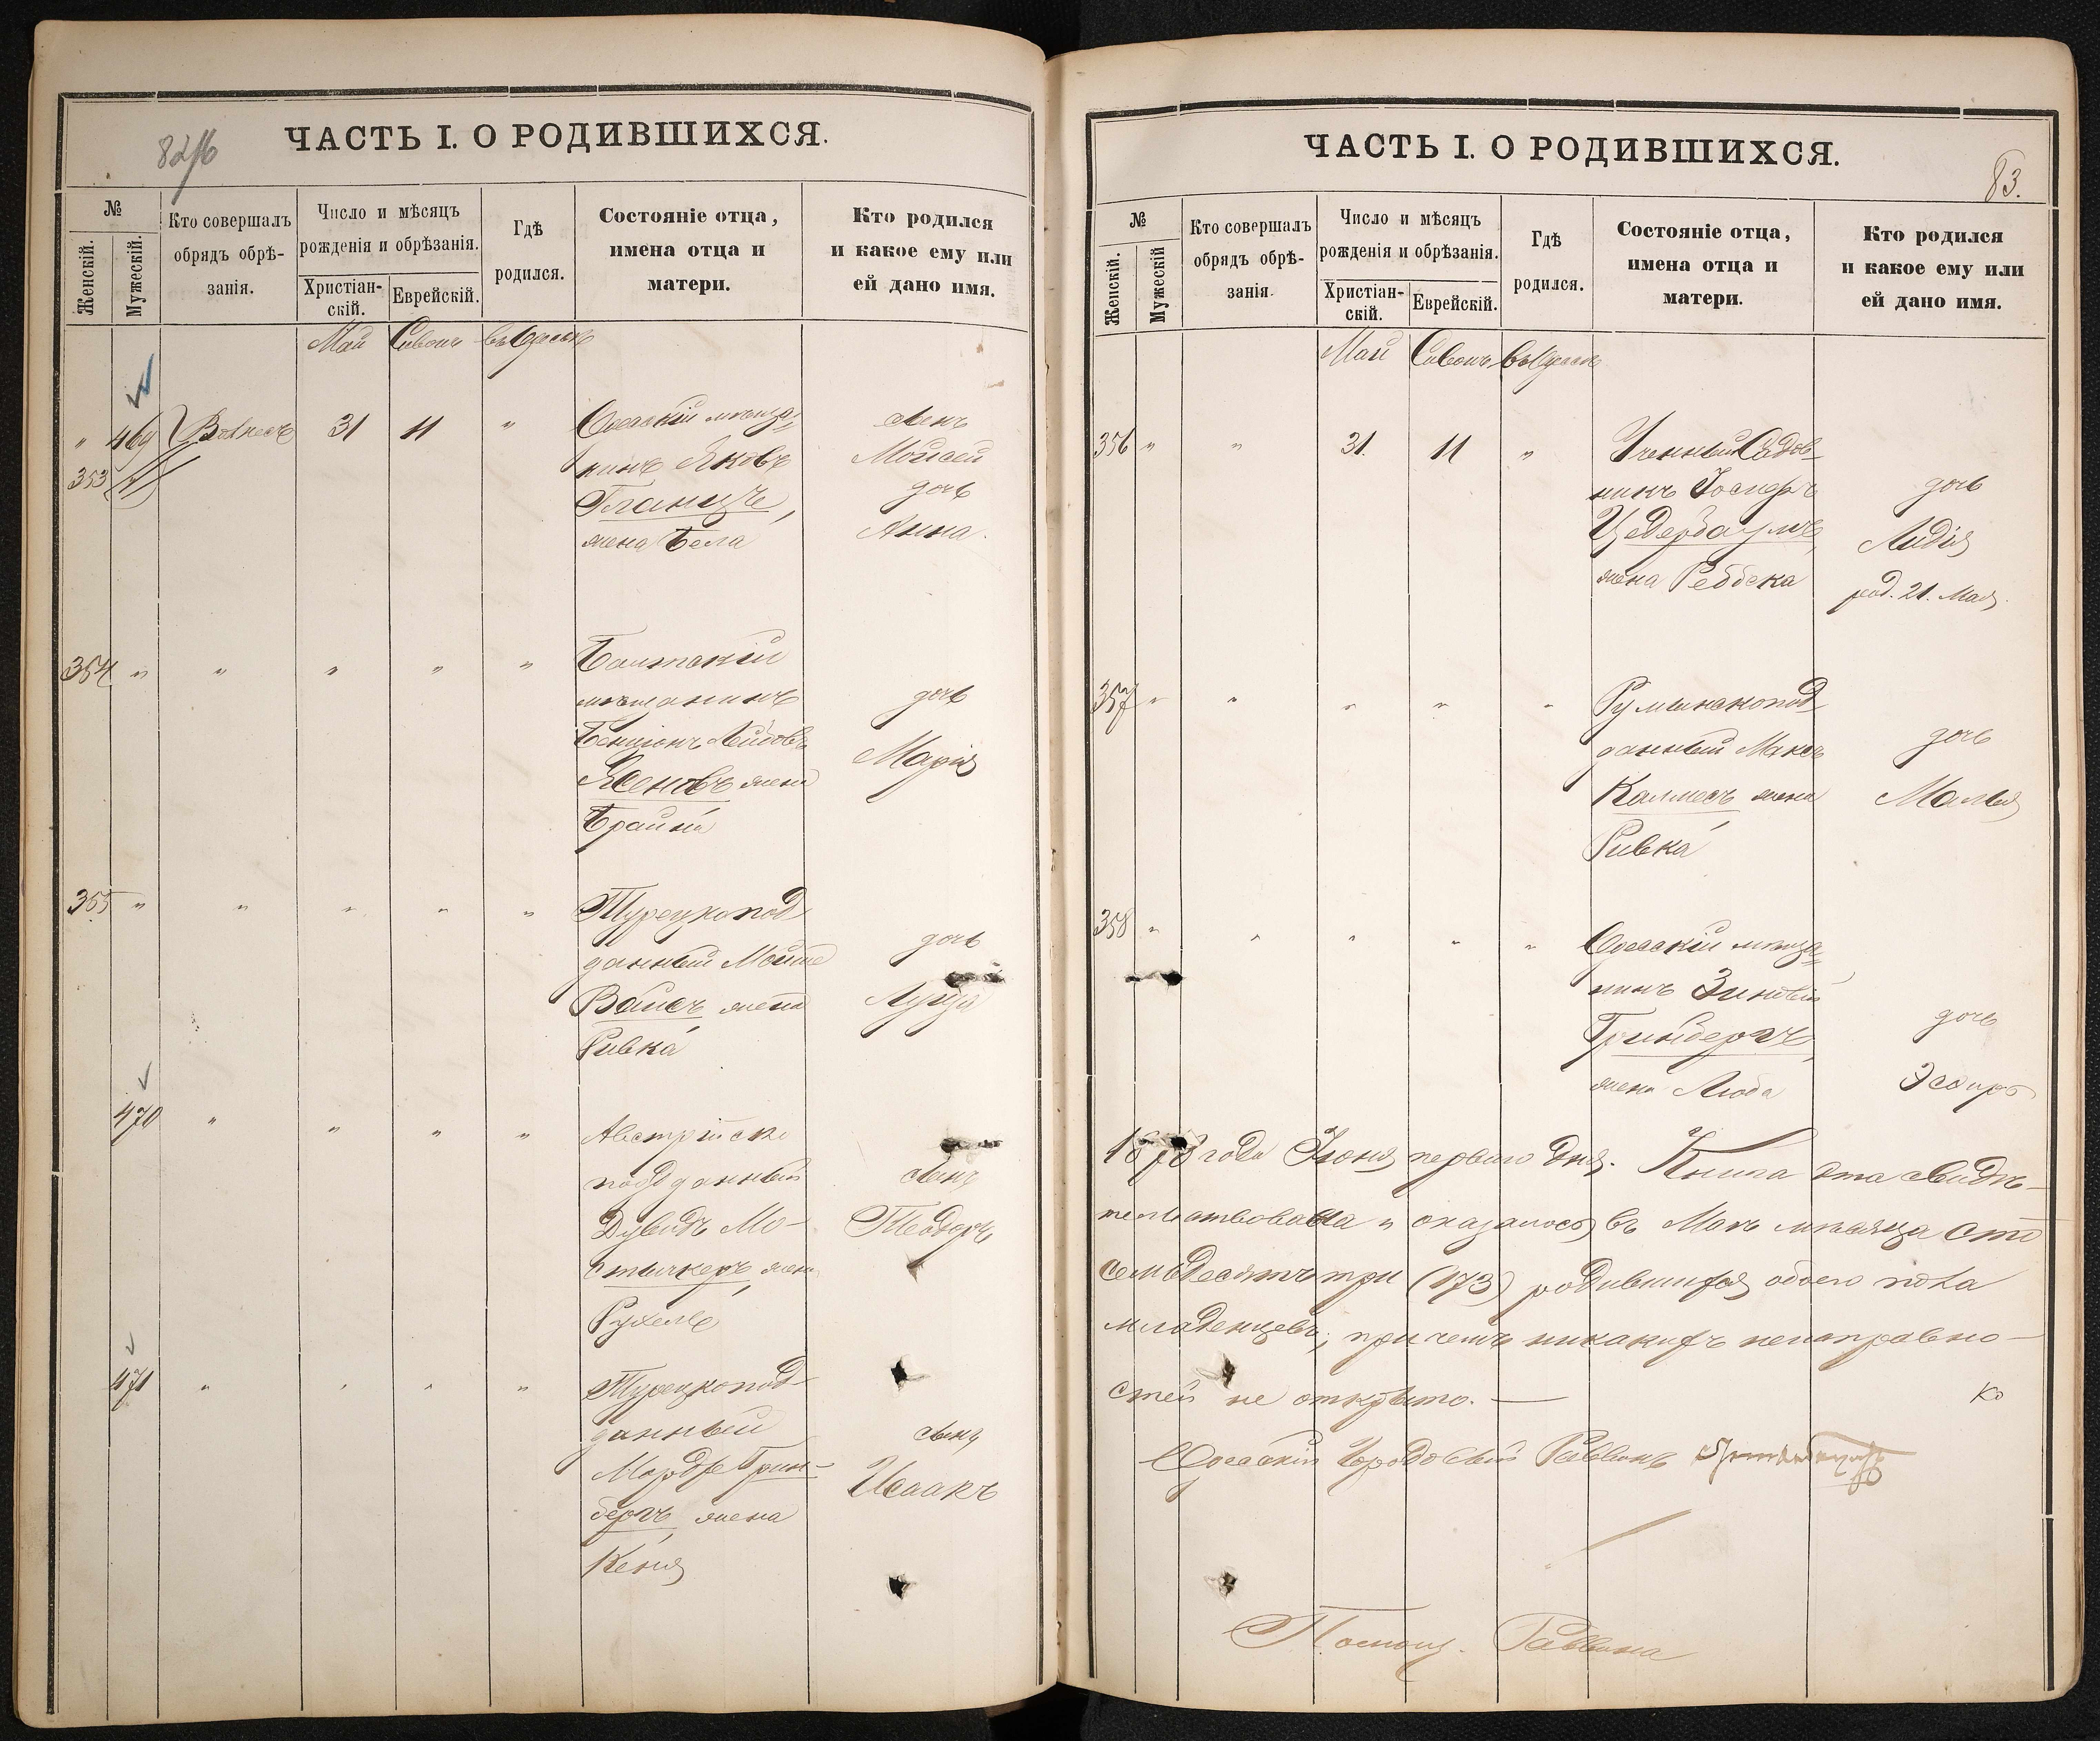 82/б
ЧАСТЬ I. О РОДИВШИХСЯ.
№
Женскій.
Мужескій.
Кто совершалъ
обрядъ обрѣ-
занія.
Число и мѣсяцъ
рожденія и обрѣзанія.
Христіан-
скій.
Еврейскій.
Гдѣ
родился.
Состояніе отца,
имена отца и
матери.
Кто родился
и какое ему или
ей дано имя.
Май Сивонъ въ Одессѣ
" 469 31 11 "
353
Одесскій мѣща=
нинъ Яковъ
Гланцъ,
жена Бела
сынъ
Мойсей
дочь
Анна.
354 " " " " "
Балтскій
мѣщанинъ
Бенціонъ Лейбовъ
Ксеновъ жена
Брайна
дочь
Марія
355 " " " " "
Турецкопод
данный Мойше
Вайсъ жена
Ривка
дочь
Луиза
470 " " " "
Австрійско
подданный
Дувидъ Мо-
стычкеръ, жена
Рухель
сынъ
Теодоръ
471 " " " "
Турецкопод-
данный
Мордхе Грин-
бергъ, жена
Кеня
сынъ
Исаакъ
ЧАСТЬ I. О РОДИВШИХСЯ.
83.
№
Женскій.
Мужескій
Кто совершалъ
обрядъ обрѣ-
занія.
Число и мѣсяцъ
рожденія и обрѣзанія.
Христіан-
скій.
Еврейскій.
Гдѣ
родился.
Состояніе отца,
имена отца и
матери.
Кто родился
и какое ему или
ей дано имя.
Май Сивонъ въ Одессѣ
356 " " 31. 11 "
Ученный Садов-
никъ Іосифъ
Цедербаумъ,
жена Ребека
дочь
Лидія
род. 21. Мая.
357 " " " " "
Румынскопод
данный Максъ
Калмесъ жена
Ривка
дочь
Малья
358 " " " " "
Одесскій мѣща=
нинъ Зиновій
Гринбергъ,
жена Люба
дочь
Эсѳирь
1878 года Іюня перваго дня. Книга эта свидѣ-
тельствована и оказалось въ Маѣ мѣсяцѣ сто
семьдесятъ три (173) родившихся обоего пола
младенцевъ; при чемъ никакихъ неисправно-
стей не открыто. —
Одесскій Городовой Раввинъ
Помощ. Раввина